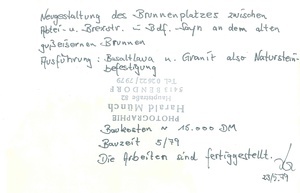 Neugestaltung des Brunnenplatzes zwischen
Abtei- u. Brexstr. in Bdf. Sayn an dem alten
gußeisernen Brunnen
Ausführung: Basaltlava u. Granit also Naturstein-
befestigung
PHOTOGRAPHIE
Harald Münch
Hauptstraße 82
BENDORF
Tel. 02622/7979
Baukosten ~ 16.000 DM
Bauzeit 5/79
Die Arbeiten sind fertiggestellt.
23/5.79